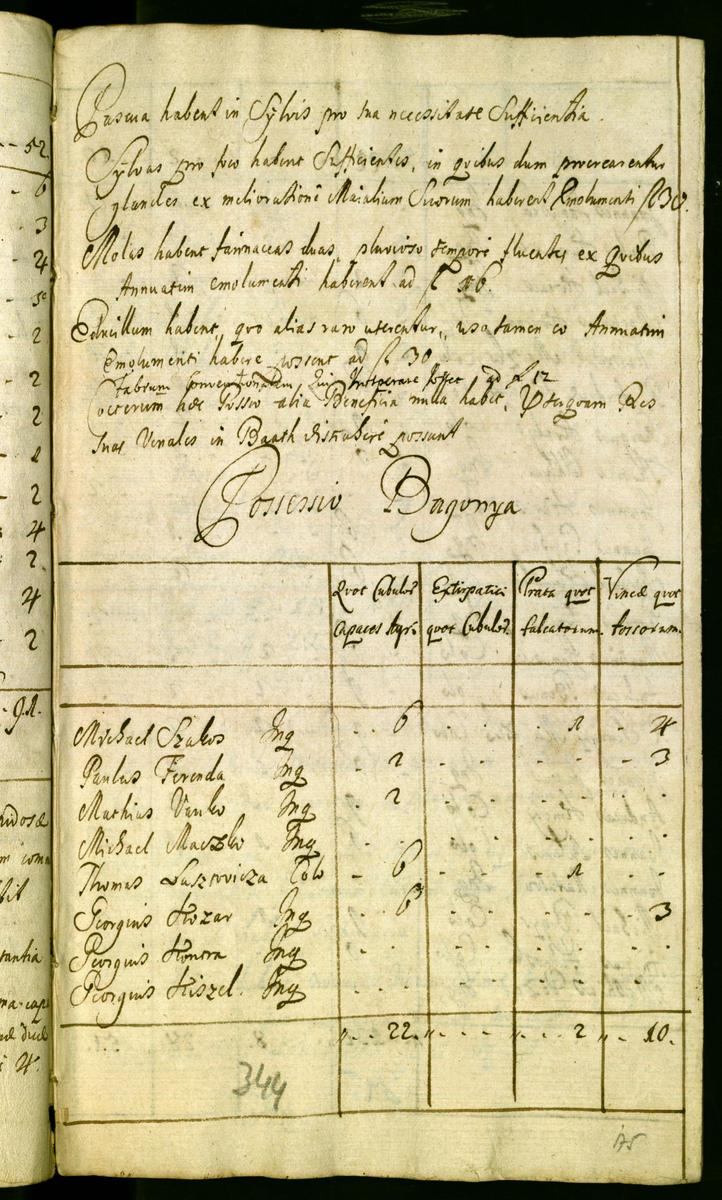 Pascua habent in Sylvis pro sua necessitate Sufficientia.
Sylvas pro foco habent Sufficientes, in qvibus dum procrearentur
glandes ex melioratione Maialium Suorum haberent Emolumenti fl 30.
Molas habent farinaceas duas, pluvioso tempore fluentes ex Qvibus
Annuatim emolumenti haberent ad fl 16.
Educillum habent, qvo alias raro uterentur, uso tamen eo Annuatim
Emolumenti habere possent ad fl 30
Fabrum Conventionatum, Qui Prosperare Posset ad fl 12
Coeterum hoec Possessio alia Beneficia nulla habet, Praeterqvam Res
suas Venales in Baath distrahere possunt
Possessio Bagonya
Qvot Cubulor. capaces Agri
Extirpatici qvot Cubulor.
Prata qvot falcatorum
Vineae qvot fossorum.
Michael Szakos Inq - - 6 - - - 1 - 4
Paulus Ferenda Inq - 2 - - - - - 3
Mathias Vanko Inq - 2 - - - - - -
Michael Maczko Inq - - - - - - - -
Thomas Laszlovicza Colo - 6 - - - 1 - -
Georgius Kozar Inq - 6 - - - - - 3
Georgius Konora Inq - - - - - - - -
Georgius Kiszel Inq - - - - - - - -
" - - 22. " - - - " - - 2 " - 10.
344
52
6
3
4
2
2
2
2
4
2
4
2
91.
tantia
4.